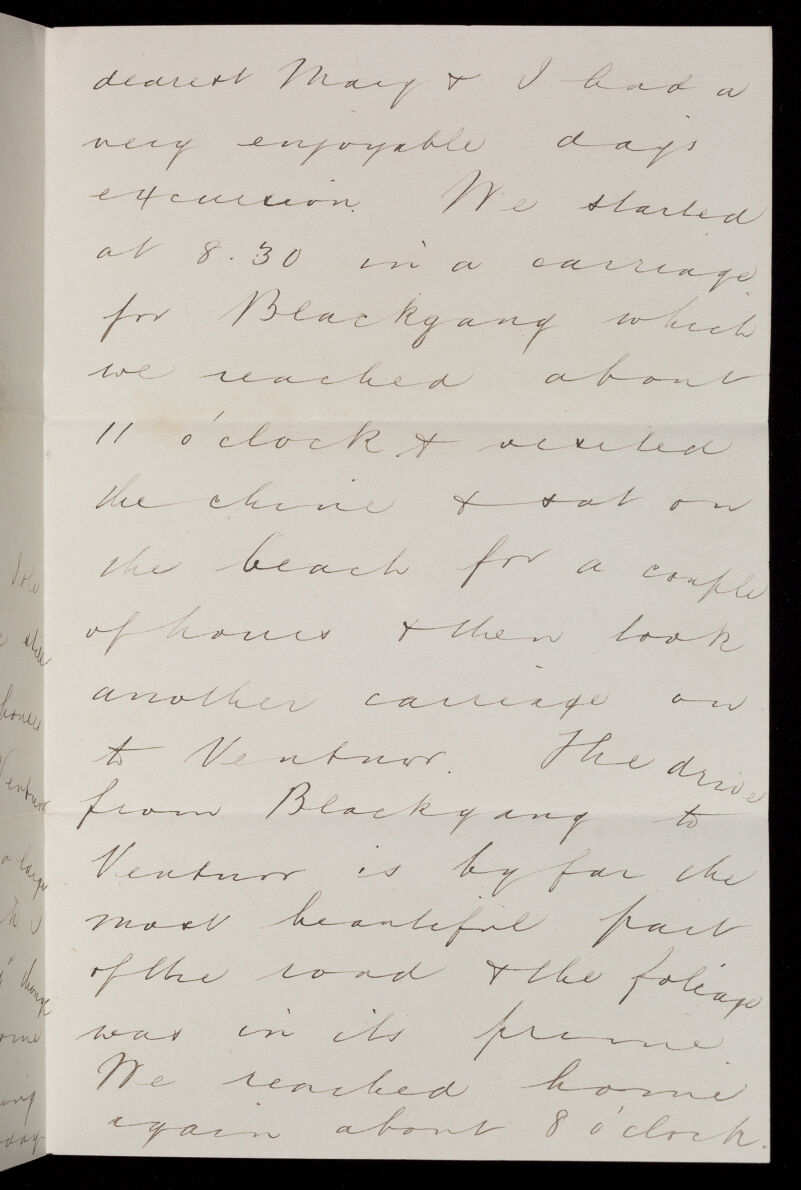 dearest Mary & I had a
very enjoyable days
excursion. We started
at 8.30 in a carriage
for Blackgang which
we reached about
11 o'clock & visited
the chine & sat on
the beach for a couple
of hours & then took
another carriage on
to Ventnor. The drive
from Blackgang to
Ventnor is by far the
most beautiful part
of the road & the foliage
was in its prime.
We reached home
again about 8 o'clock.
still
houses
Ventnor
a large